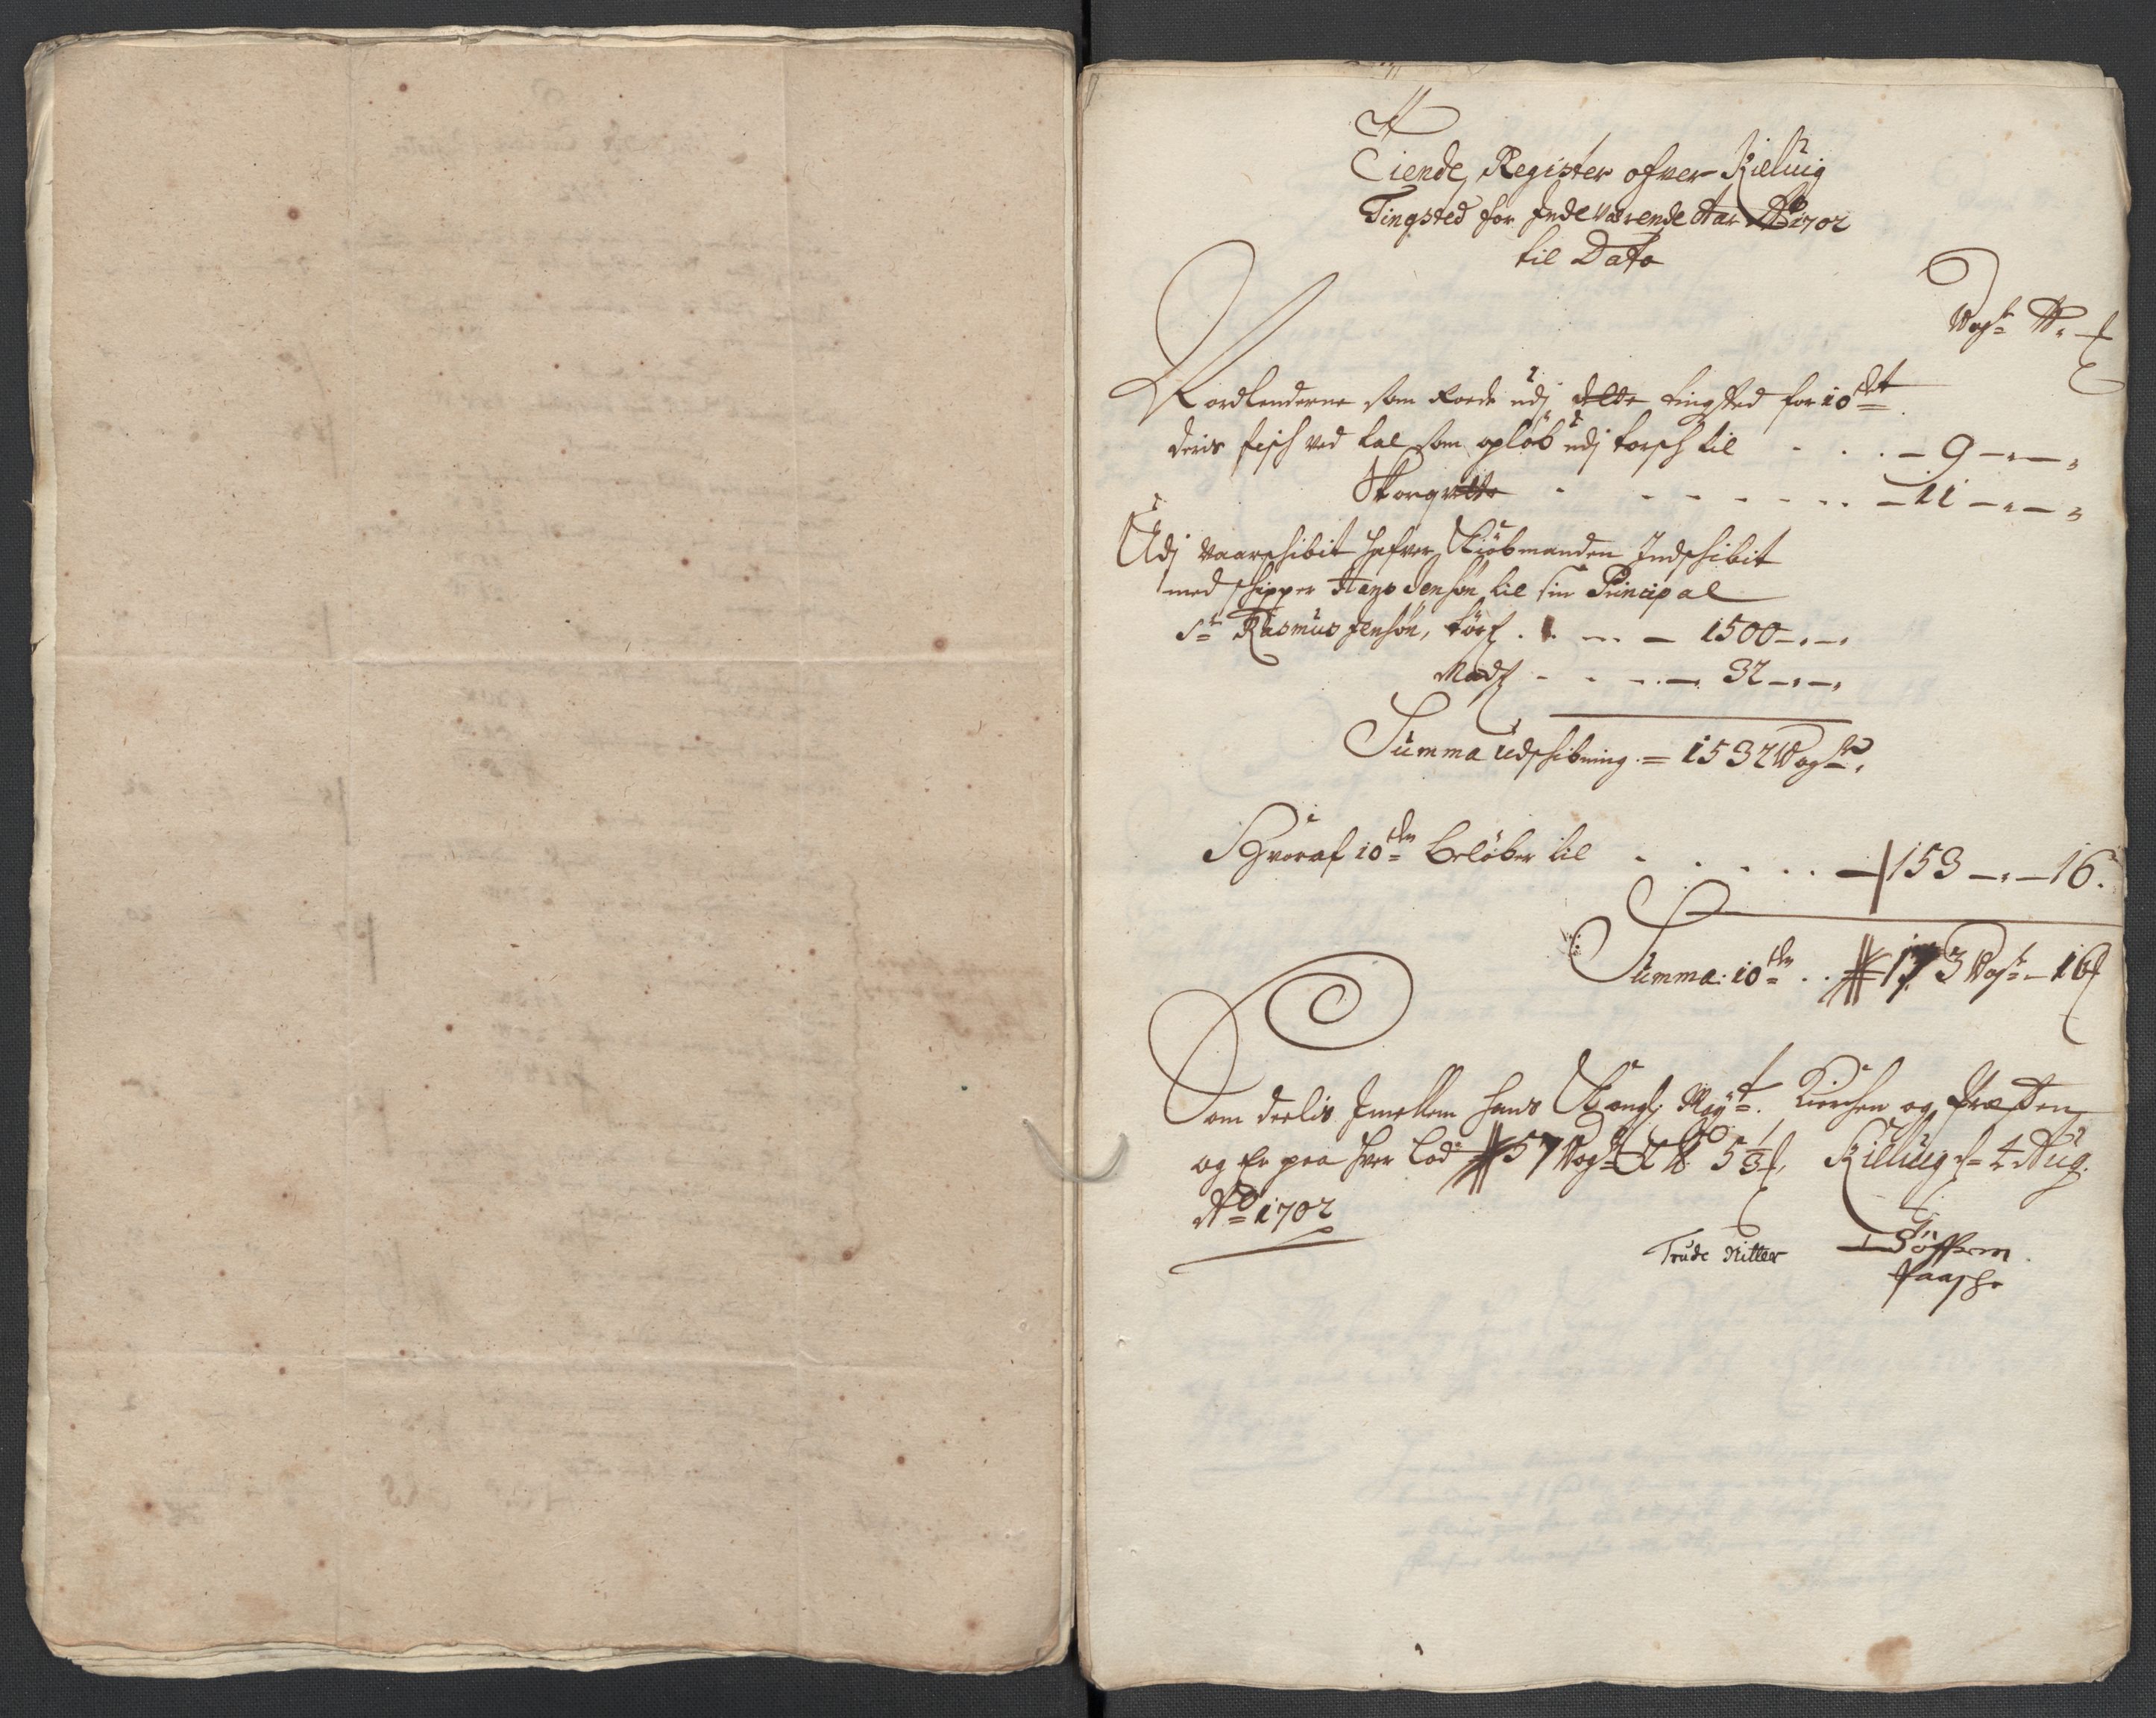 Tiende Register ofver Kielvig
Tingsted for Indeværende Aar Ao 1702
til Dato
Vog: ℔.
Nordlenderne som Roede udj dette tingsted for 10det
deris fisch ved tal som opløb udj torsch til - - - 9 - -
- - - - - - - 11 - -
Udj vaarschibit hafver Kiøbmanden Indschibit
med schipper Hans Jensøn til sin Principal
Sr Rasmus Jensøn, tørf. - - - 1500 - -
Rodf - - - - 32 - -
Summa udschibning = 1532 Voger
Hvoraf 10den beløber til - - - - - 153 - - 16.
Summa: 10den - - 173 Vog: - 16
Som deelis Imellem hans Kongl: Mayt. Kirchen og Præsten
og Er paa hver Lod 57 Vog 2 ℔ 5 1/3, Kielvig d= 4 Aug.
Ao 1702
Trude Ritter
Tøffrem
Paasche